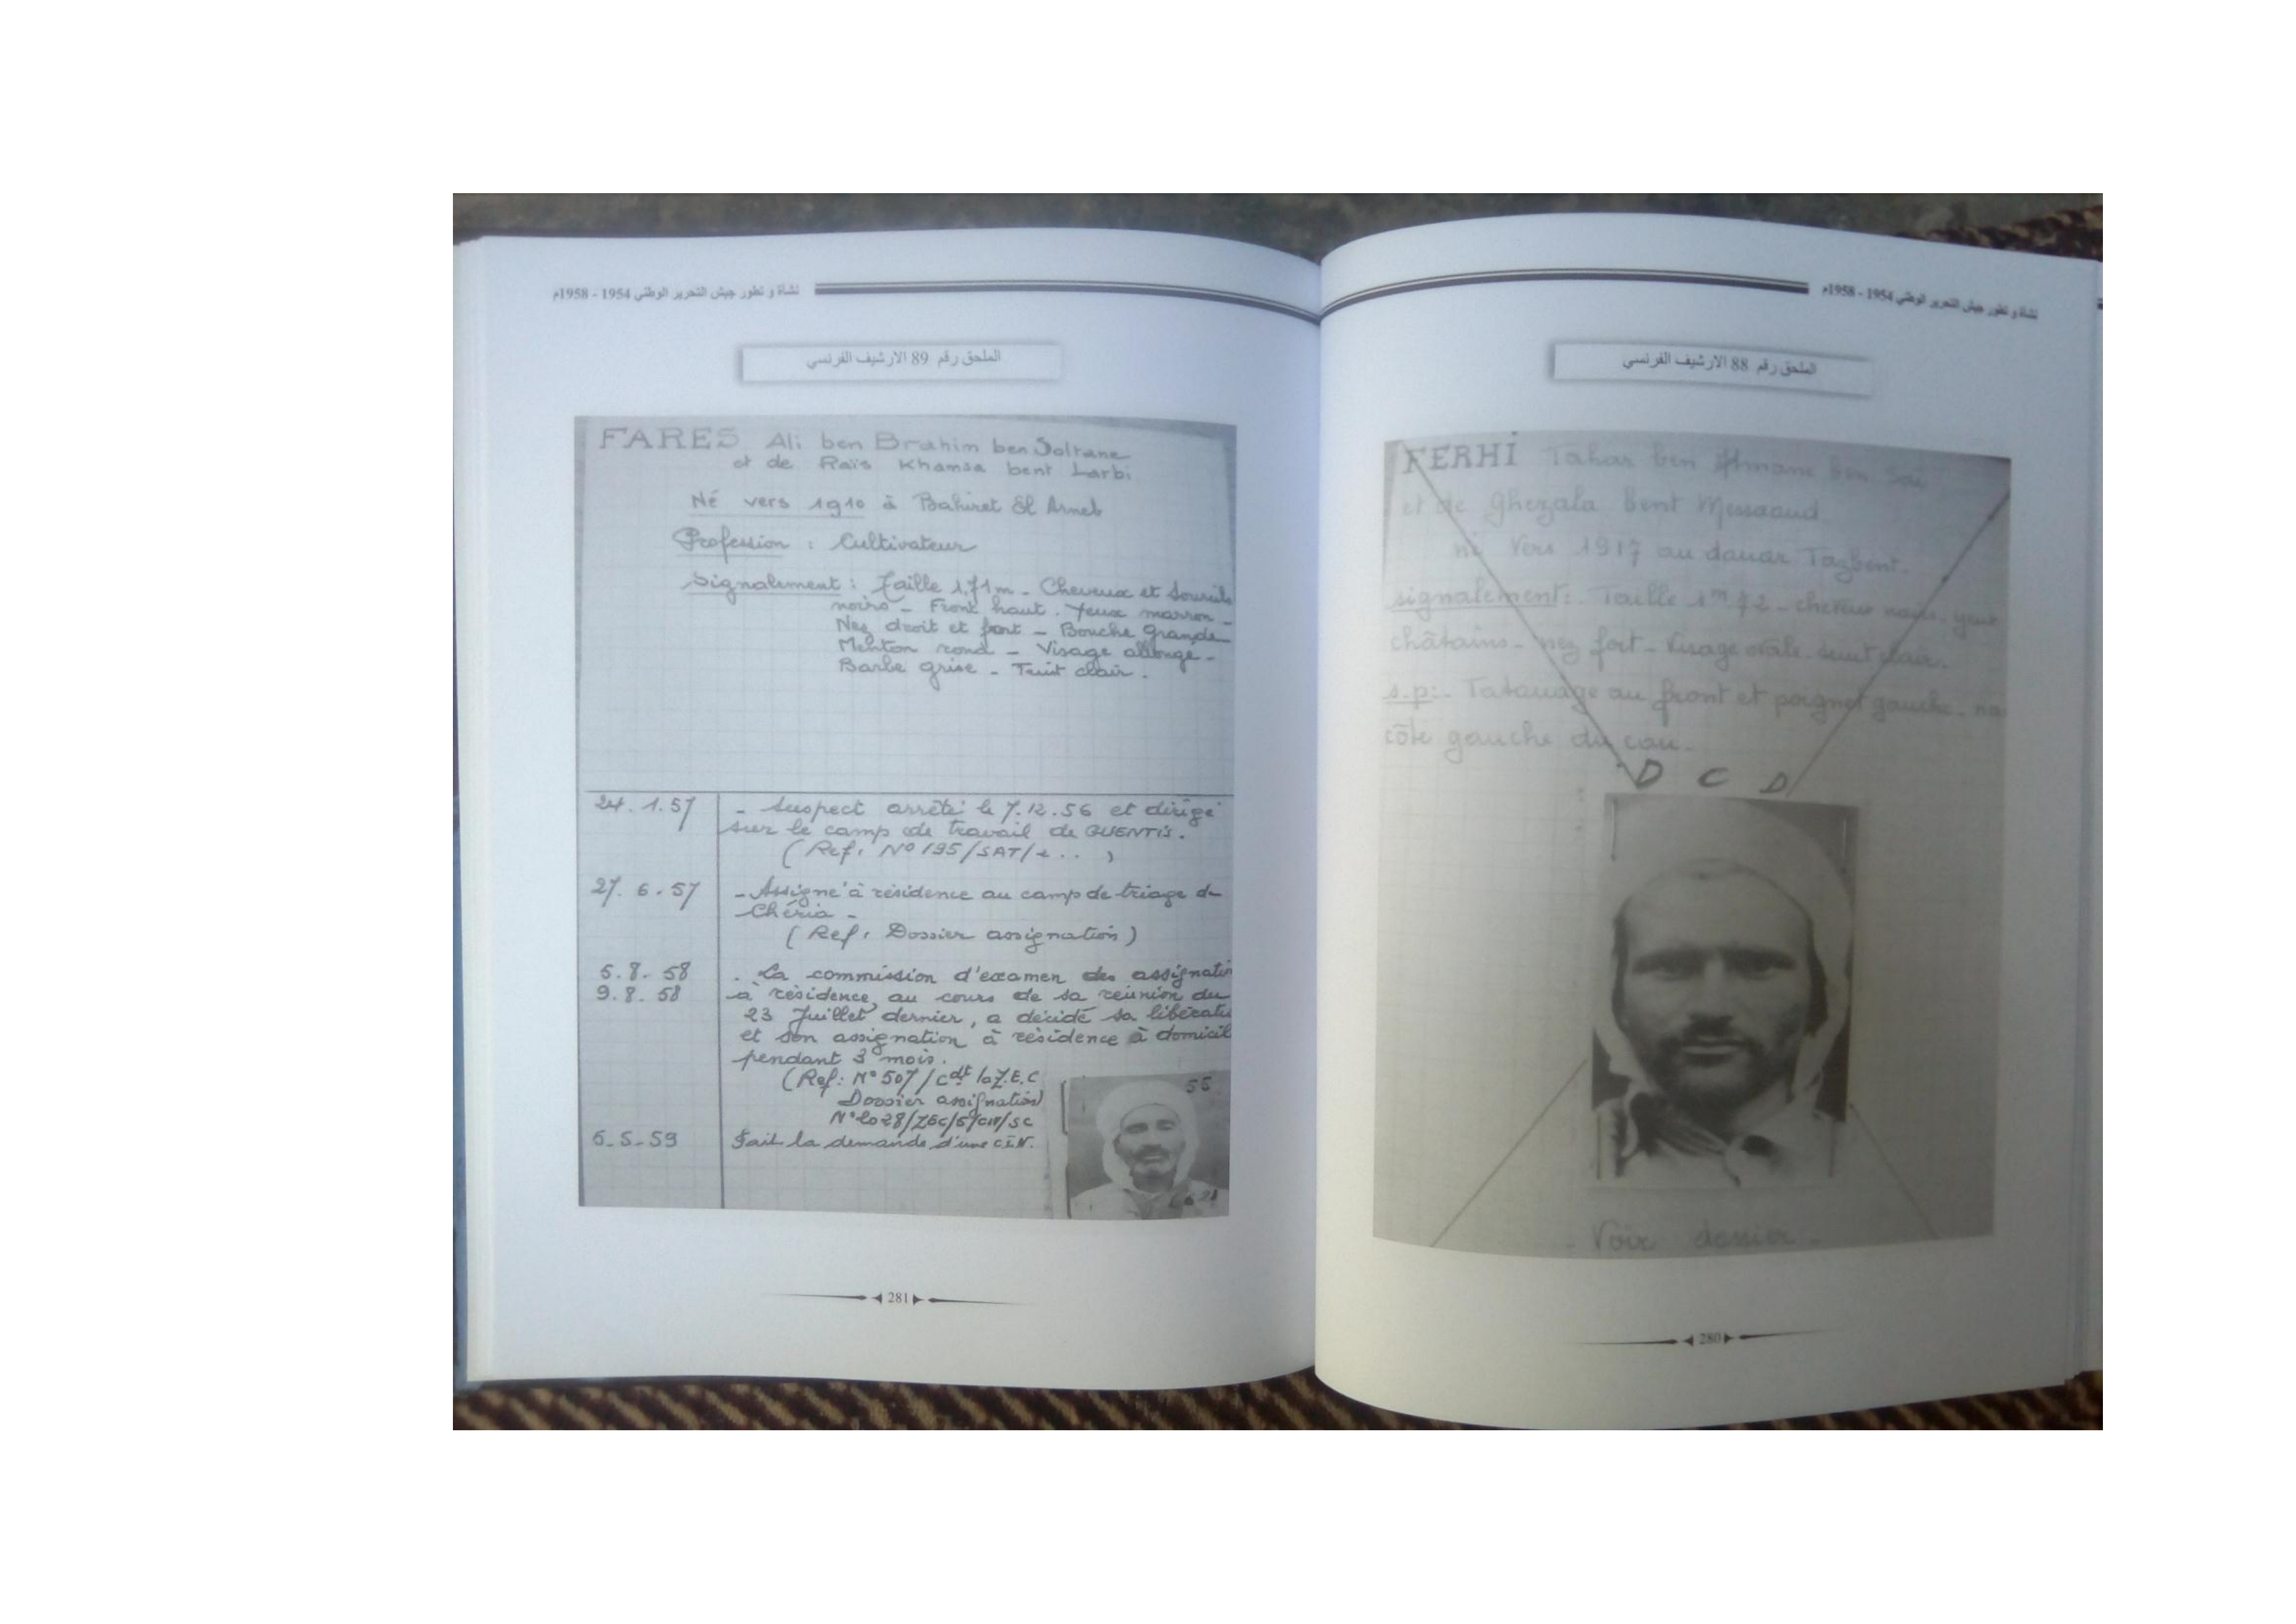 نشأة و تطور جيش التحرير الوطني 1954 - 1958م
الملحق رقم 88 الارشيف الفرنسي
FERHI Tahar ben Atmane ben Sai
et de Ghezala bent Messaoud
né Vers 1917 au douar Tazbent.
signalement: Taille 1m72 - cheveux noirs - yeux
châtains - nez fort - Visage ovale - teint clair.
s.p: Tatouage au front et poignet gauche -
côté gauche du cou.
D C D
- Voir dossier -
280
نشأة و تطور جيش التحرير الوطني 1954 - 1958م
الملحق رقم 89 الارشيف الفرنسي
FARES Ali ben Brahim ben Soltane
et de Raïs Khamsa bent Larbi
Né vers 1910 à Bahiret El Arneb
Profession : Cultivateur
Signalement : Taille 1,71m - Cheveux et Sourcils
noirs - Front haut. Yeux marron -
Nez droit et fort - Bouche grande
Menton rond - Visage allongé -
Barbe grise - Teint clair.
24.1.57 - Suspect arrêté le 7.12.56 et dirigé
sur le camp de travail de GUENTIS.
(Ref. N° 195/SAT/2.. )
27.6.57 - Assigné à résidence au camp de triage de
Chéria -
(Ref. Dossier assignation)
5.8.58 . La commission d'examen des assignatio
9.8.58 à résidence, au cours de sa réunion du
23 Juillet dernier, a décidé sa libérati
et son assignation à résidence à domicil
pendant 3 mois.
(Ref: N° 507/Cdt la Z.E.C
Dossier assignation)
N° 2028/ZEC/5/CIV/SC
6-5-59 Fait la demande d'une C.I.N.
55
281